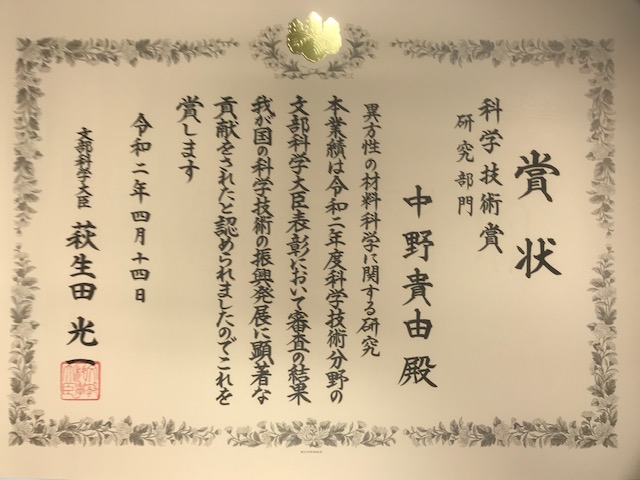 賞状
科学技術賞
研究部門
中野貴由殿
異方性の材料科学に関する研究
本業績は令和二年度科学技術分野の
文部科学大臣表彰において審査の結果
我が国の科学技術の振興発展に顕著な
貢献をされたと認められましたのでこれを
賞します
令和二年四月十四日
文部科学大臣 萩生田光一